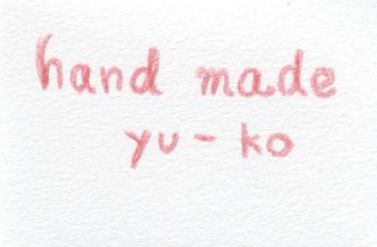 hand made
yu-ko